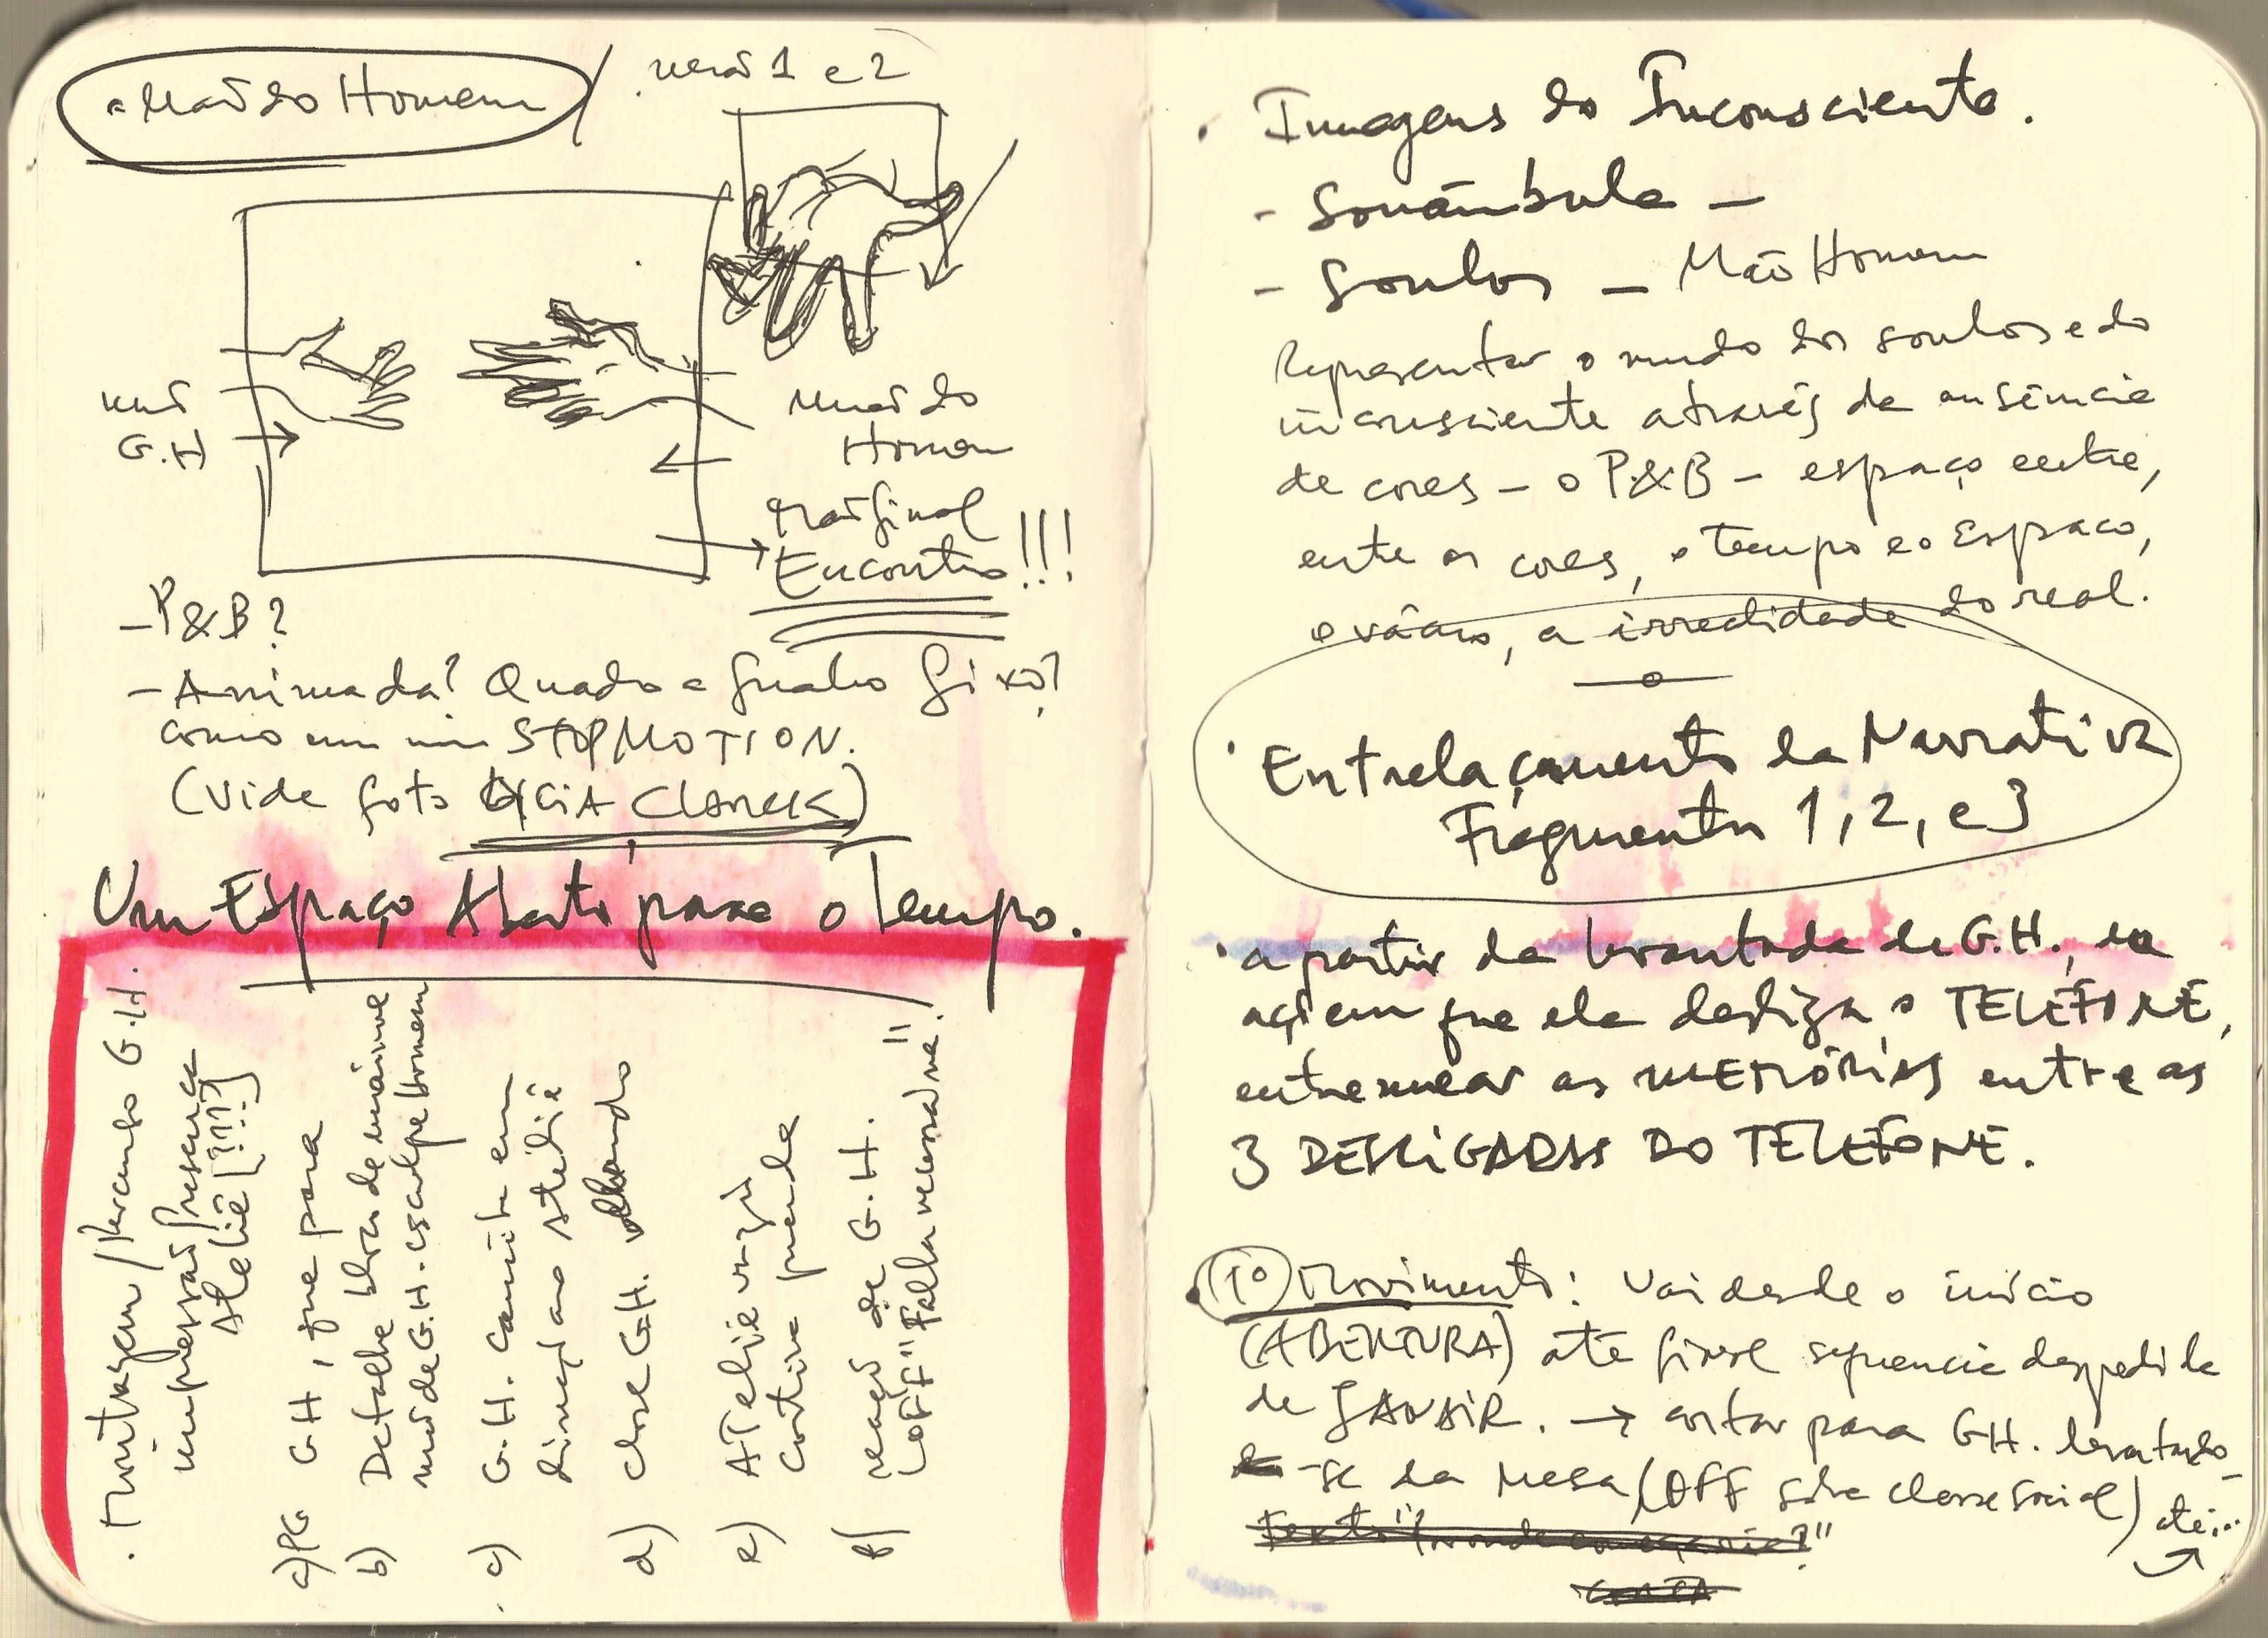 a Mão do Homem / versão 1 e 2
mão
G.H
mão do
Homem
Encontro!!!
- P&B?
- Animada? Quadro a quadro fixo?
como um mini STOPMOTION.
(Vide foto LYGIA CLARCK)
Um Espaço Aberto para o Tempo.
. Montagem / Percurso G.H.
impressão / presença
Ateliê [???]
a) PG G.H, que para
b) Detalhe bloco de mármore
mão de G.H. esculpe homem
c) G.H. caminha em
direção ao ateliê
d) close G.H. olhando
e) ATeliê vazio
cortina
f) reação de G.H.
(OFF "Falha necessária"
. Imagens do Inconsciente.
- Sonâmbula -
- Sonhos - Mão Homem
Representar o mundo dos sonhos e do
inconsciente através da ausência
de cores - o P&B - espaço entre,
entre as cores, o Tempo e o Espaço,
o vácuo, a irrealidade do real.
. Entrelaçamento da Narrativa
Fragmentos 1, 2, e 3
. a partir da levantada de G.H., na
ação em que ela desliga o TELEFONE,
entremear as MEMÓRIAS entre as
3 DESLIGADAS DO TELEFONE.
. 1º Movimento: Vai desde o início
(ABERTURA) até final sequencia despedida
de JANAIR. → cortar para G.H. levantando
-se da Mesa (OFF sobre classe social) até...